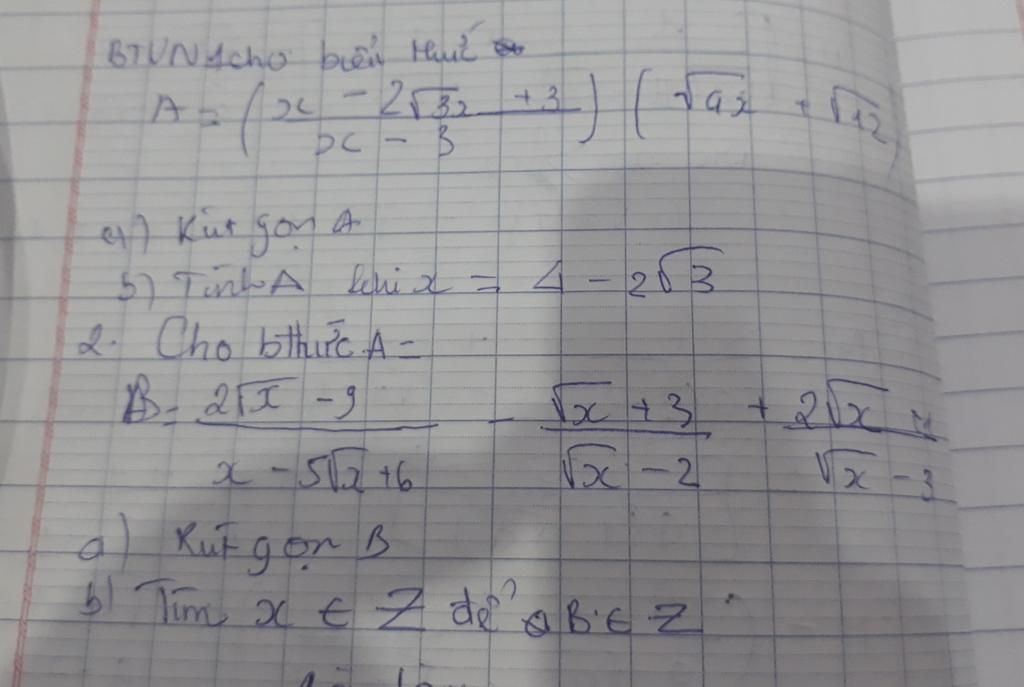 BTVN 1 cho biểu thức
A = ( x - 2√3x + 3 / x - 3 ) ( √4x + √12 )
a) Rút gọn A
b) Tính A khi x = 4 - 2√3
2. Cho bthức A =
B = 2√x - 9 / x - 5√x + 6 - √x + 3 / √x - 2 + 2√x / √x - 3
a) Rút gọn B
b) Tìm x ∈ Z để B ∈ Z